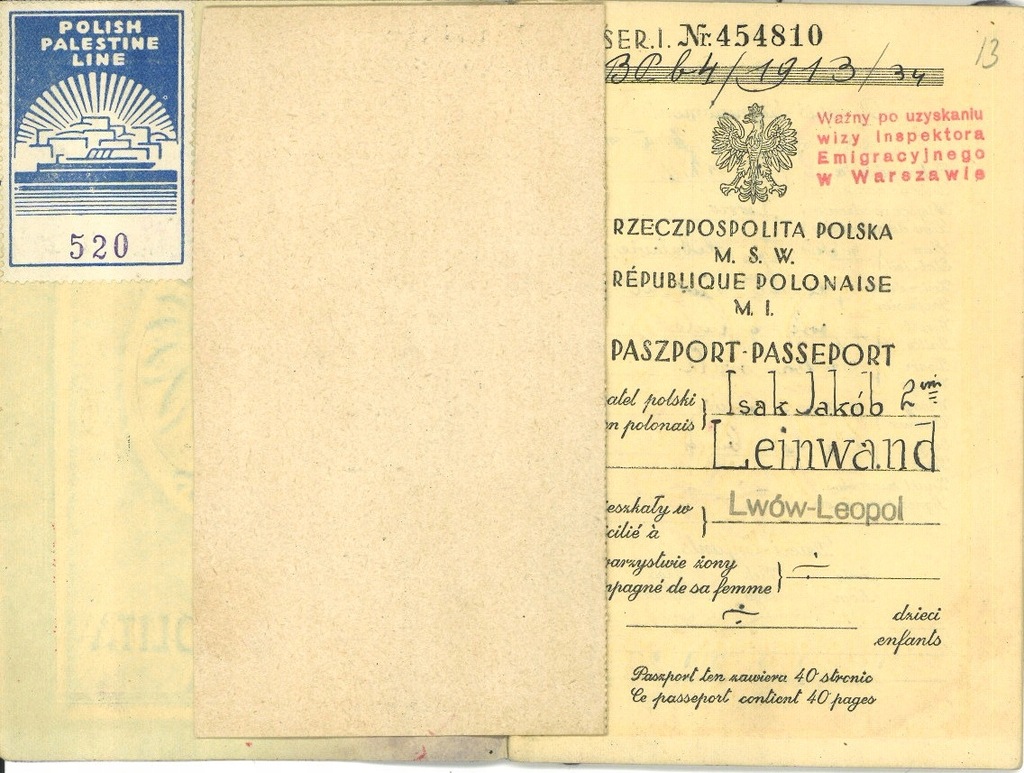 POLISH
PALESTINE
LINE
520
SER. I. Nr. 454810
64/1913/34
13
Ważny po uzyskaniu
wizy Inspektora
Emigracyjnego
w Warszawie
RZECZPOSPOLITA POLSKA
M. S. W.
RÉPUBLIQUE POLONAISE
M. I.
PASZPORT-PASSEPORT
atel polski
n polonais
Isak Jakób 2
Leinwand
eszkały w
cilié à
Lwów-Leopol
arzystwie żony
mpagné de sa femme
dzieci
enfants
Paszport ten zawiera 40 stronic
Ce passeport contient 40 pages